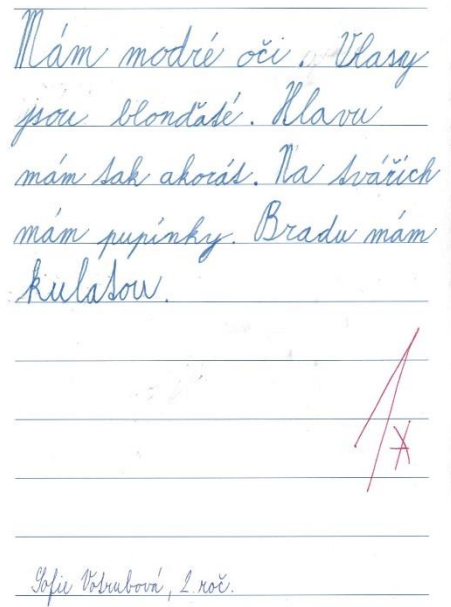 Mám modré oči. Vlasy
jsou blonďaté. Hlavu
mám tak akorát. Na tvářích
mám pupínky. Bradu mám
kulatou.
1*
Sofie Votrubová, 2. roč.